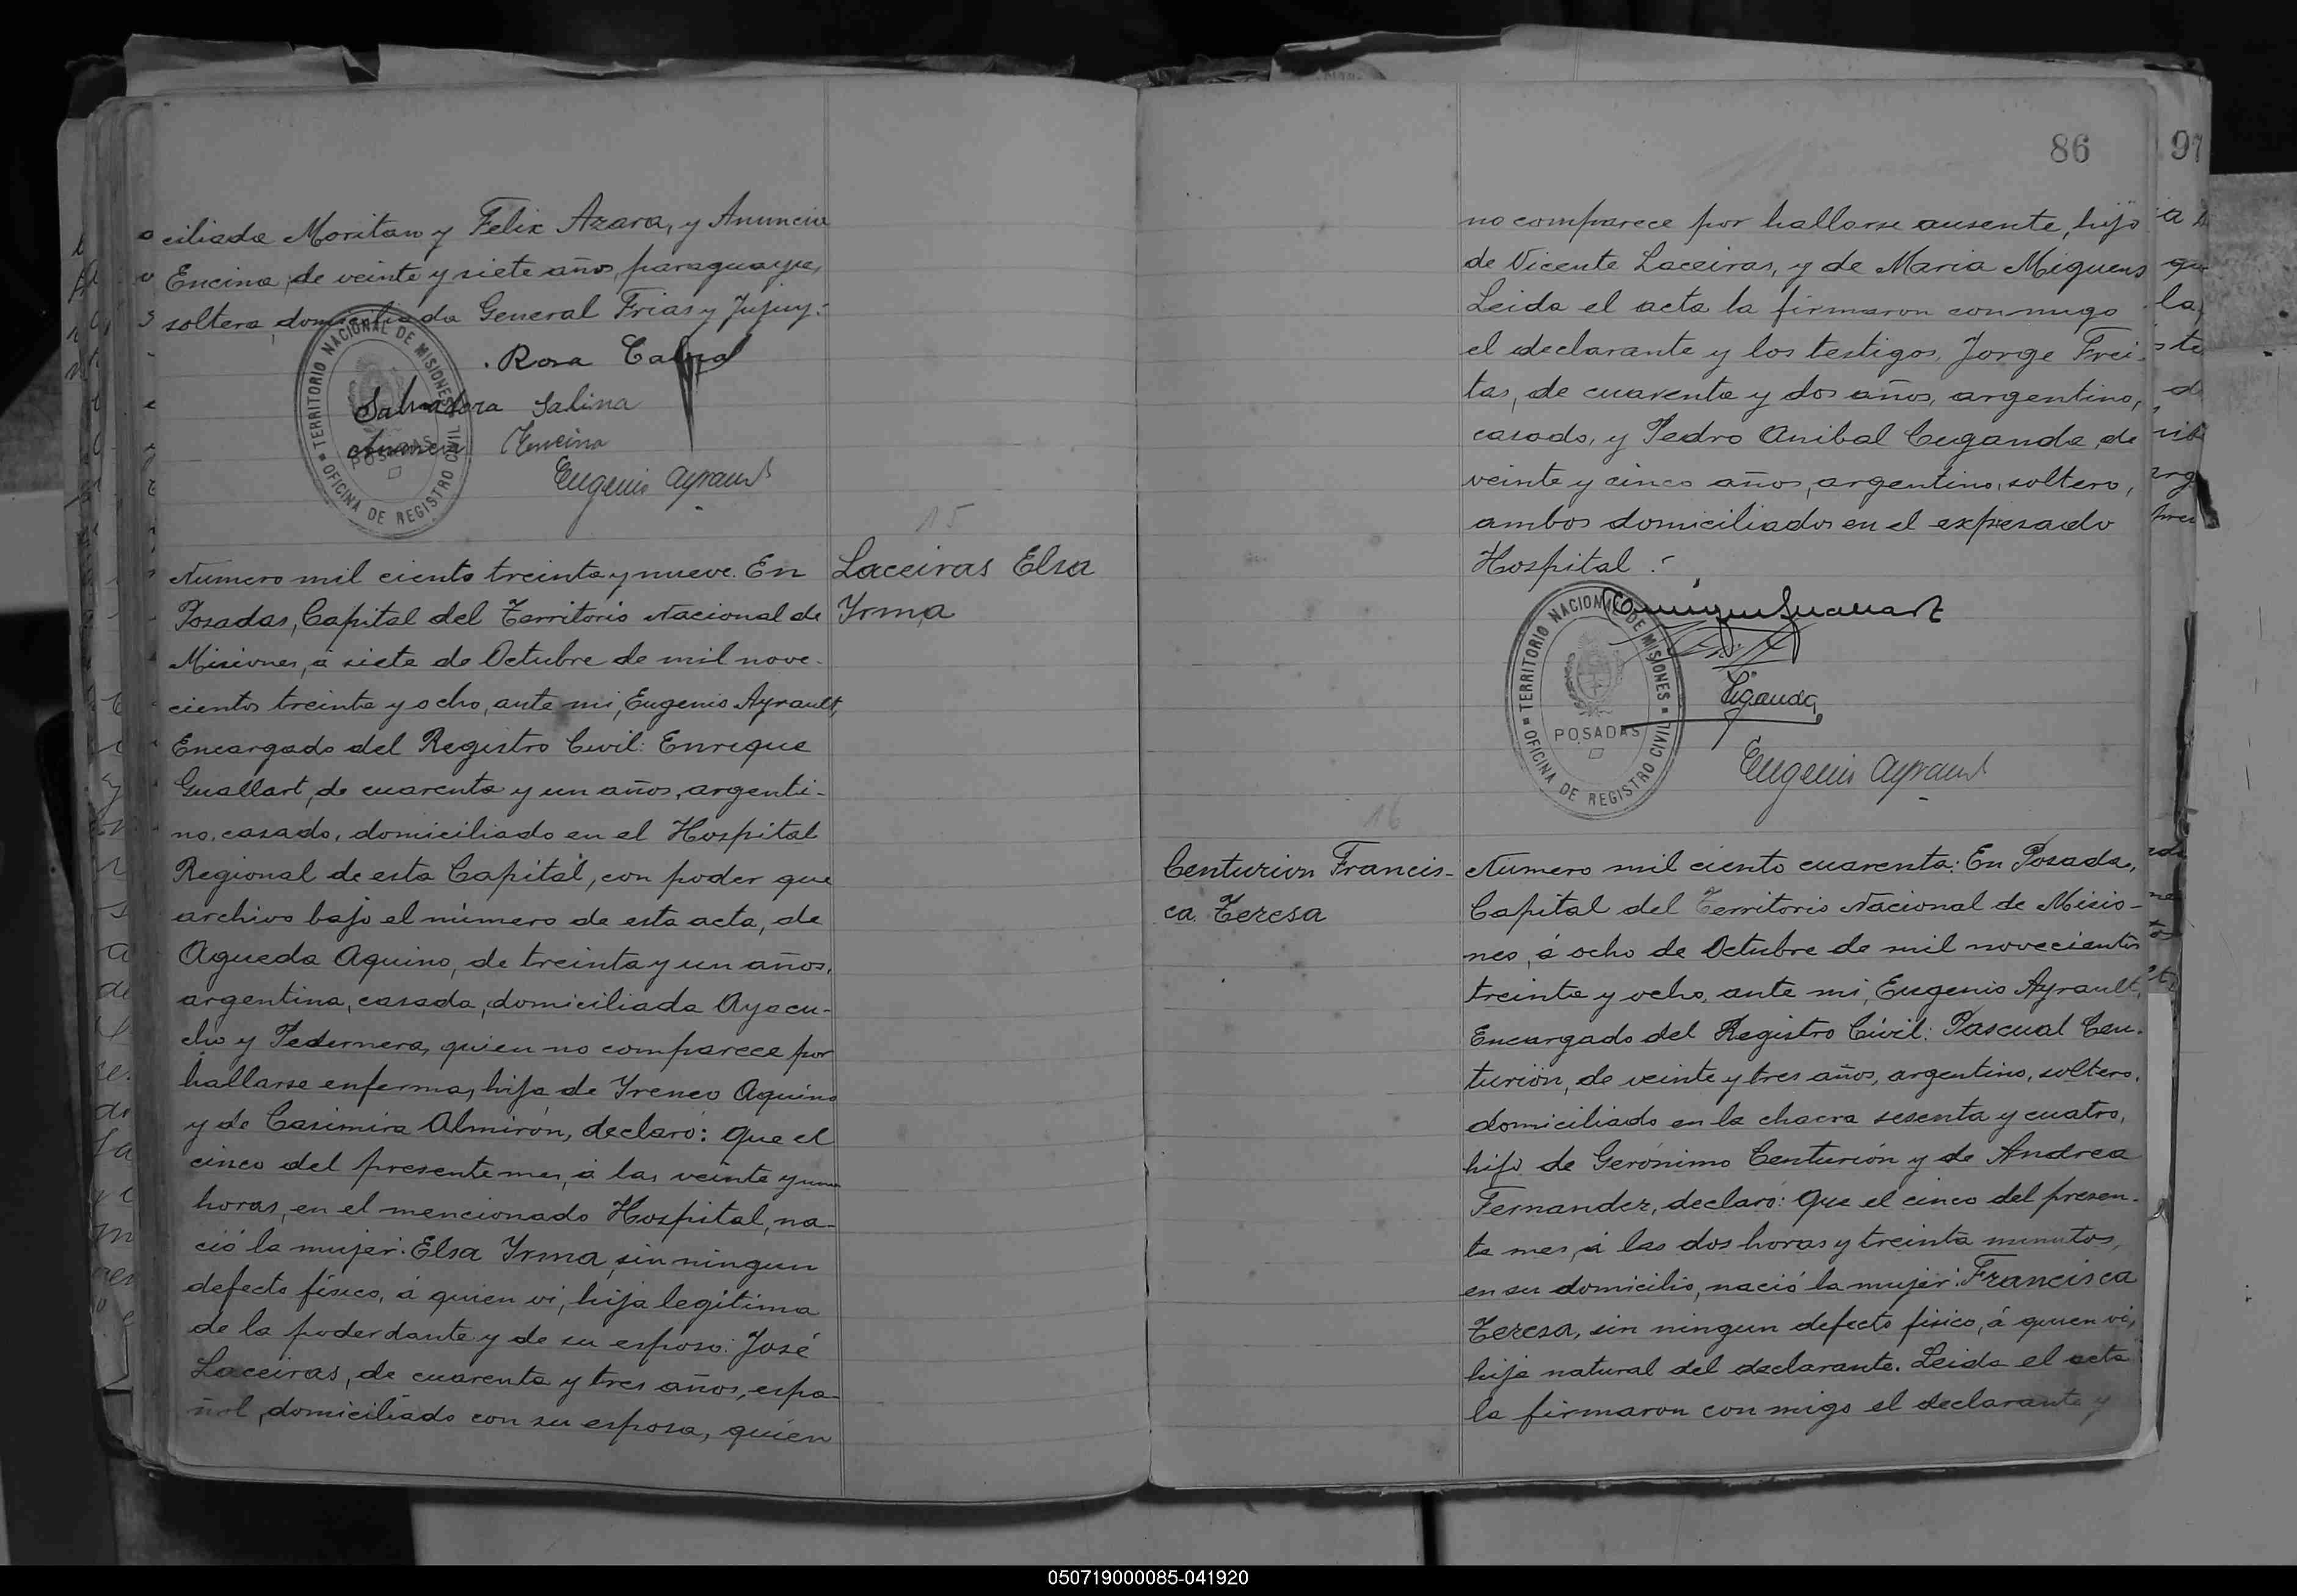 ciliada Moritan y Felix Azara, y Anuncia
Encina, de veinte y siete años, paraguaya,
soltera, domiciliada General Frias y Jujuy:
Rosa Cabral
Salvadora Salina
Anuncia Encina
Eugenio Ayrault
TERRITORIO NACIONAL DE MISIONES
POSADAS
OFICINA DE REGISTRO CIVIL
15
Laceiras Elsa
Yrma
Numero mil ciento treinta y nueve. En
Posadas, Capital del Territorio Nacional de
Misiones, á siete de Octubre de mil nove-
cientos treinta y ocho, ante mi, Eugenio Ayrault,
Encargado del Registro Civil: Enrique
Guallart, de cuarenta y un años, argenti-
no, casado, domiciliado en el Hospital
Regional de esta Capital, con poder que
archivo bajo el número de esta acta, de
Agueda Aquino, de treinta y un años,
argentina, casada, domiciliada Ayacu-
cho y Pedernera, quien no comparece por
hallarse enferma, hija de Yreneo Aquino
y de Casimira Almirón, declaró: Que el
cinco del presente mes, á las veinte y una
horas, en el mencionado Hospital, na-
ció la mujer: Elsa Yrma, sin ningun
defecto físico, á quien vi, hija legitima
de la poderdante y de su esposo: José
Laceiras, de cuarenta y tres años, espa-
ñol, domiciliado con su esposa, quién
86
97
no comparece por hallarse ausente, hijo
de Vicente Laceiras, y de Maria Miguens
Leida el acta la firmaron conmigo
el declarante y los testigos, Jorge Frei-
tas, de cuarenta y dos años, argentino,
casado, y Pedro Anibal Ciganda, de
veinte y cinco años, argentino, soltero,
ambos domiciliados en el expresado
Hospital:
Enrique Guallart
Ciganda
Eugenio Ayrault
TERRITORIO NACIONAL DE MISIONES
POSADAS
OFICINA DE REGISTRO CIVIL
16
Centurion Francis-
ca Teresa
Numero mil ciento cuarenta: En Posadas,
Capital del Territorio Nacional de Misio-
nes, á ocho de Octubre de mil novecientos
treinta y ocho, ante mi, Eugenio Ayrault,
Encargado del Registro Civil: Pascual Cen-
turión, de veinte y tres años, argentino, soltero,
domiciliado en la chacra sesenta y cuatro,
hijo de Gerónimo Centurión y de Andrea
Fernandez, declaró: Que el cinco del presen-
te mes, á las dos horas y treinta minutos,
en su domicilio, nació la mujer: Francisca
Teresa, sin ningun defecto fisico, á quien vi,
hija natural del declarante. Leida el acta
la firmaron conmigo el declarante y
050719000085-041920